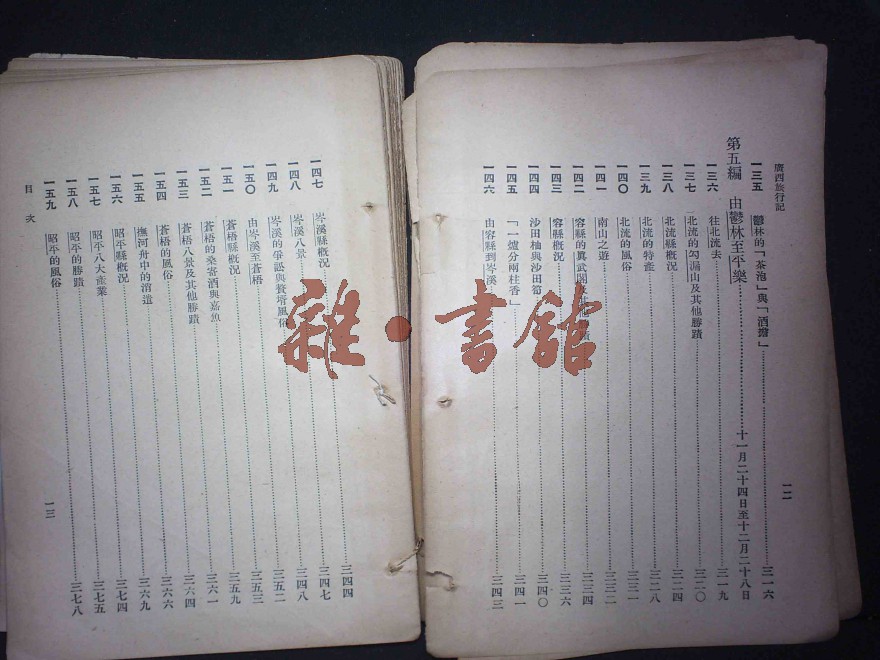 廣西旅行記
一二
一三五 鬱林的「茶泡」與「酒壻」 三一六
第五編 由鬱林至平樂 十一月二十四日至十二月二十八日
一三六 往北流去 三一九
一三七 北流的勾漏山及其他勝蹟 三二〇
一三八 北流縣概況 三二四
一三九 北流的特產 三二八
一四〇 北流的風俗 三三一
一四一 南山之遊 三三二
一四二 容縣的眞武閣 其他勝 三三四
一四三 容縣概況 三三六
一四四 沙田柚與沙田節 三四〇
一四五 「一爐分兩柱香」 三四一
一四六 由容縣到岑溪 三四三
一四七 岑溪縣概況 三四四
一四八 岑溪八景 三四七
一四九 岑溪的爭訟與 塔風俗 三四八
一五〇 由岑溪至蒼梧 三五二
一五一 蒼梧縣概況 三五三
一五二 蒼梧的桑寄酒與嘉魚 三五九
一五三 蒼梧八景及其他勝蹟 三六一
一五四 蒼梧的風俗 三六四
一五五 撫河舟中的消遣 三六六
一五六 昭平縣概況 三六九
一五七 昭平八大產業 三七四
一五八 昭平的勝蹟 三七五
一五九 昭平的風俗 三七八
目次
一三
雜·書館